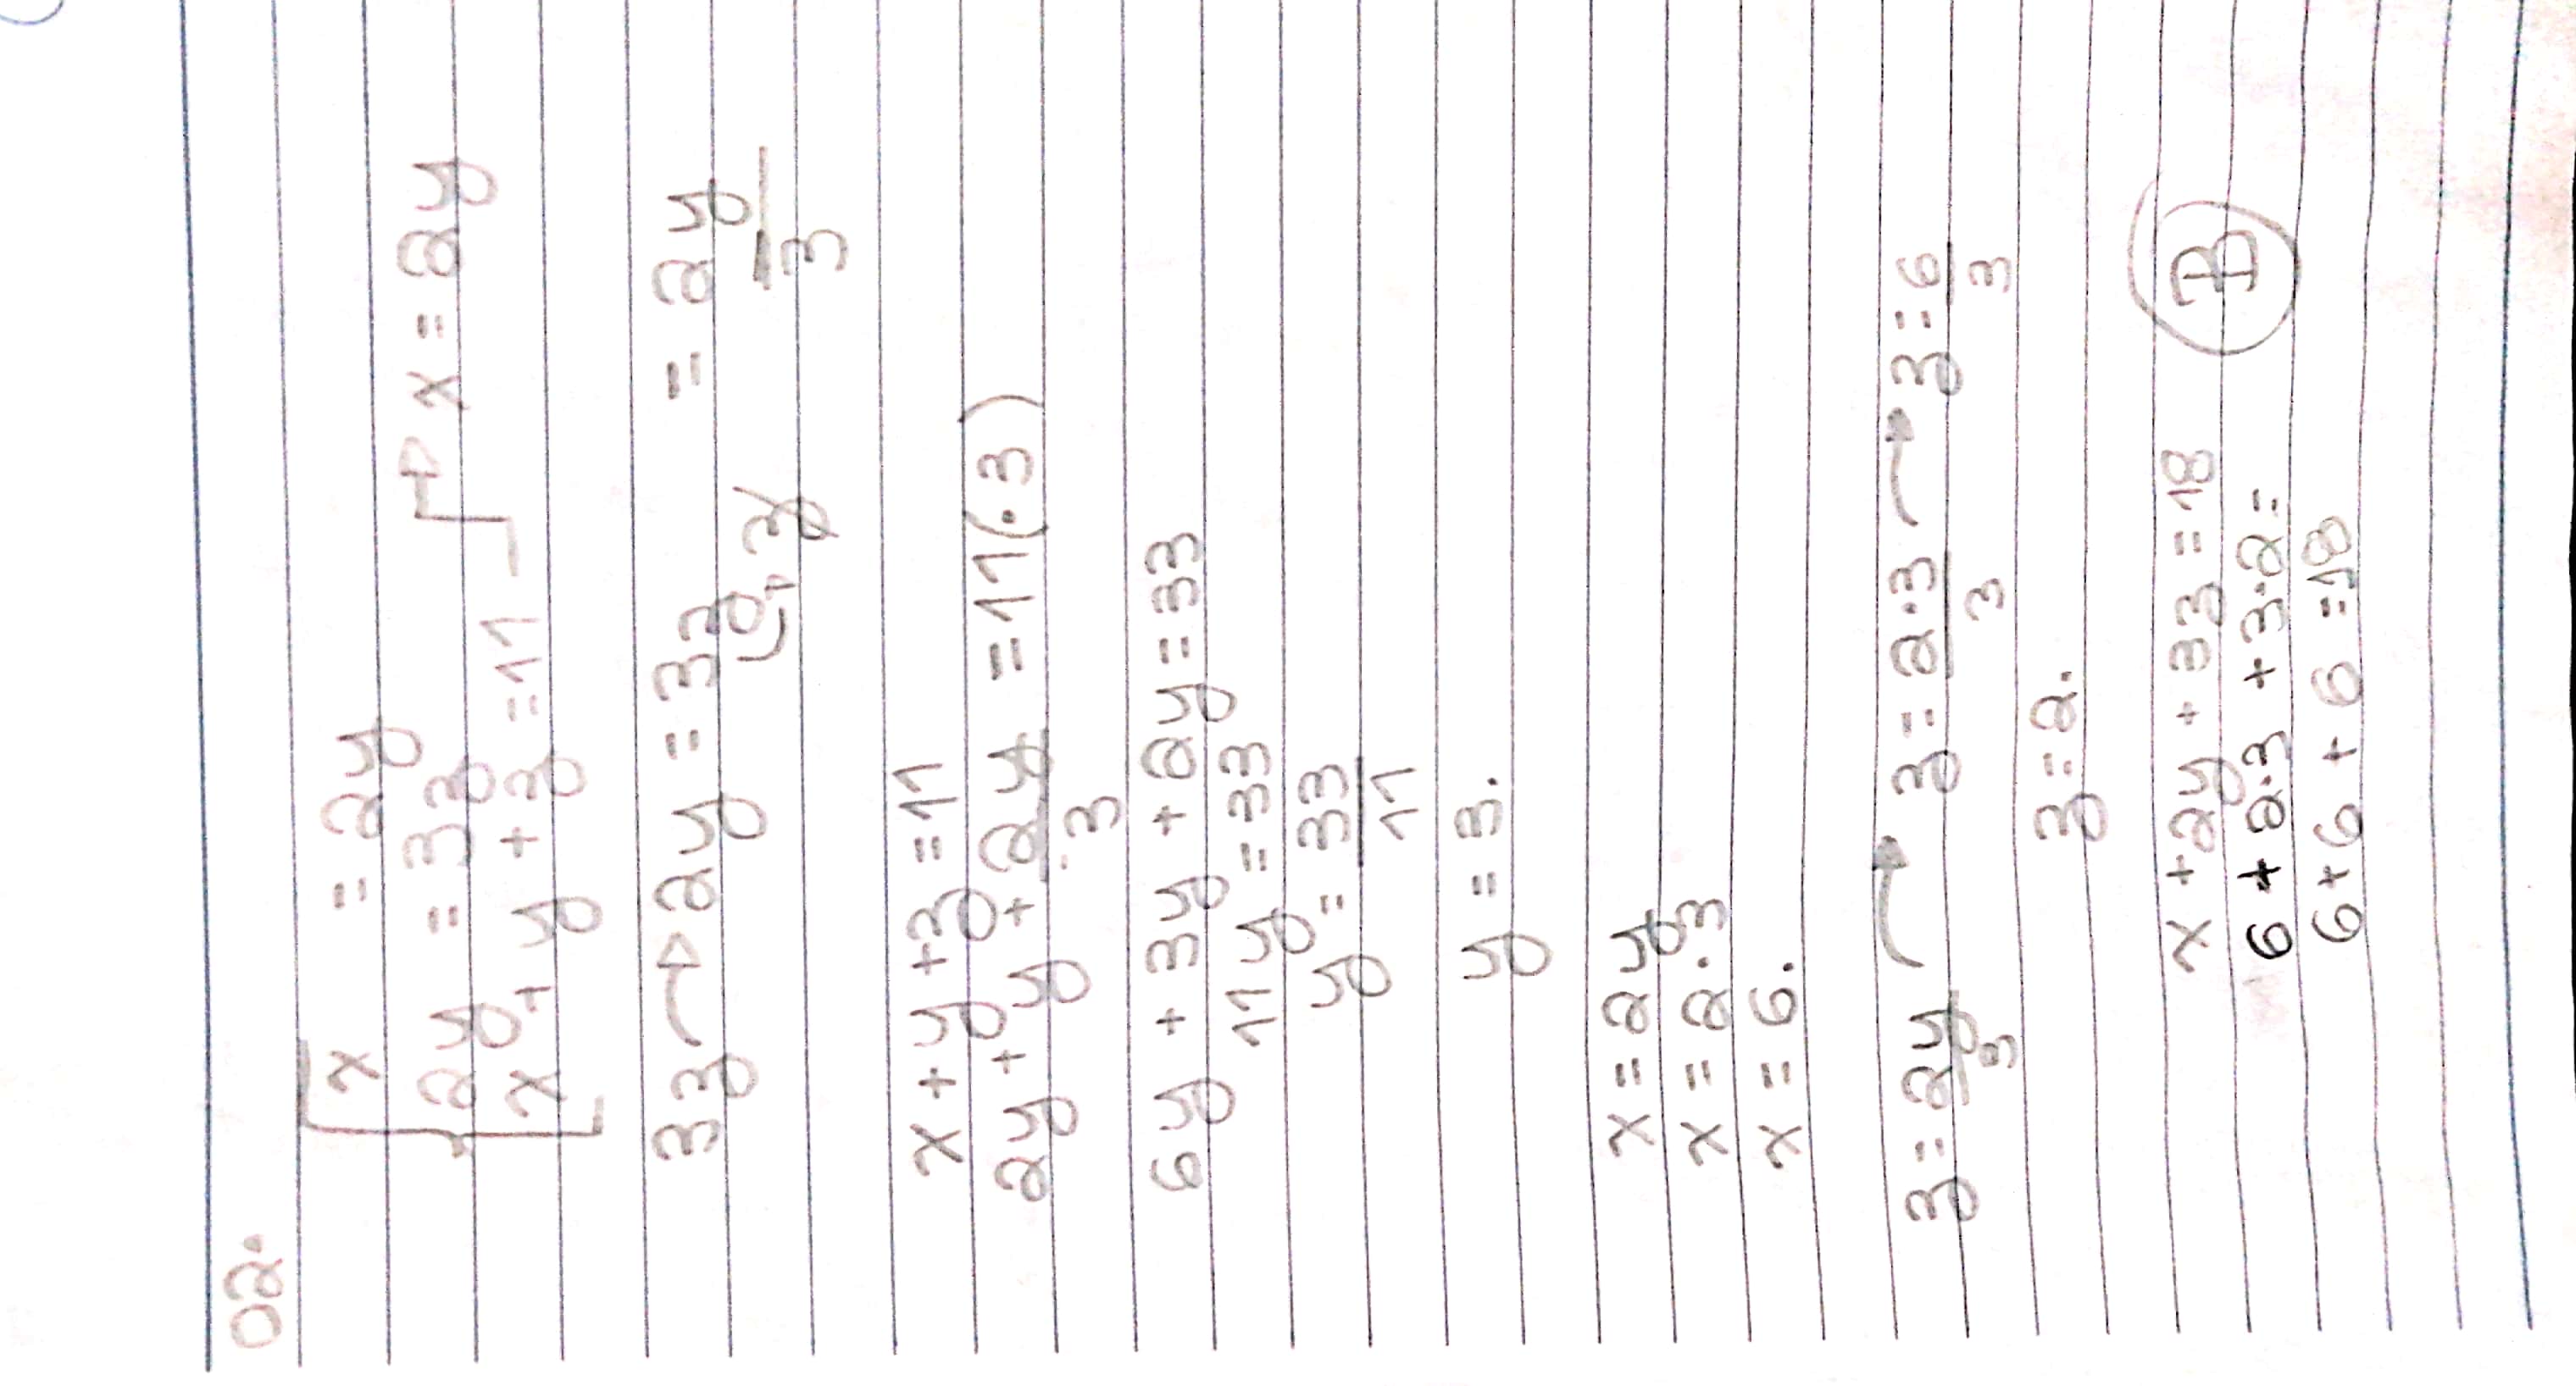 02.
x = 2y
2y = 3z → x = 2y
x + y + z = 11
3z → 2y = 3z = 2y/3
↳ z
x + y + z = 11
2y + y + 2y/3 = 11 (·3)
6y + 3y + 2y = 33
11y = 33
y = 33/11
y = 3.
x = 2y
x = 2·3
x = 6.
z = 2y/3 → z = 2·3/3 → z = 6/3
z = 2.
x + 2y + 3z = 18
6 + 2·3 + 3·2 =
6 + 6 + 6 = 18
B